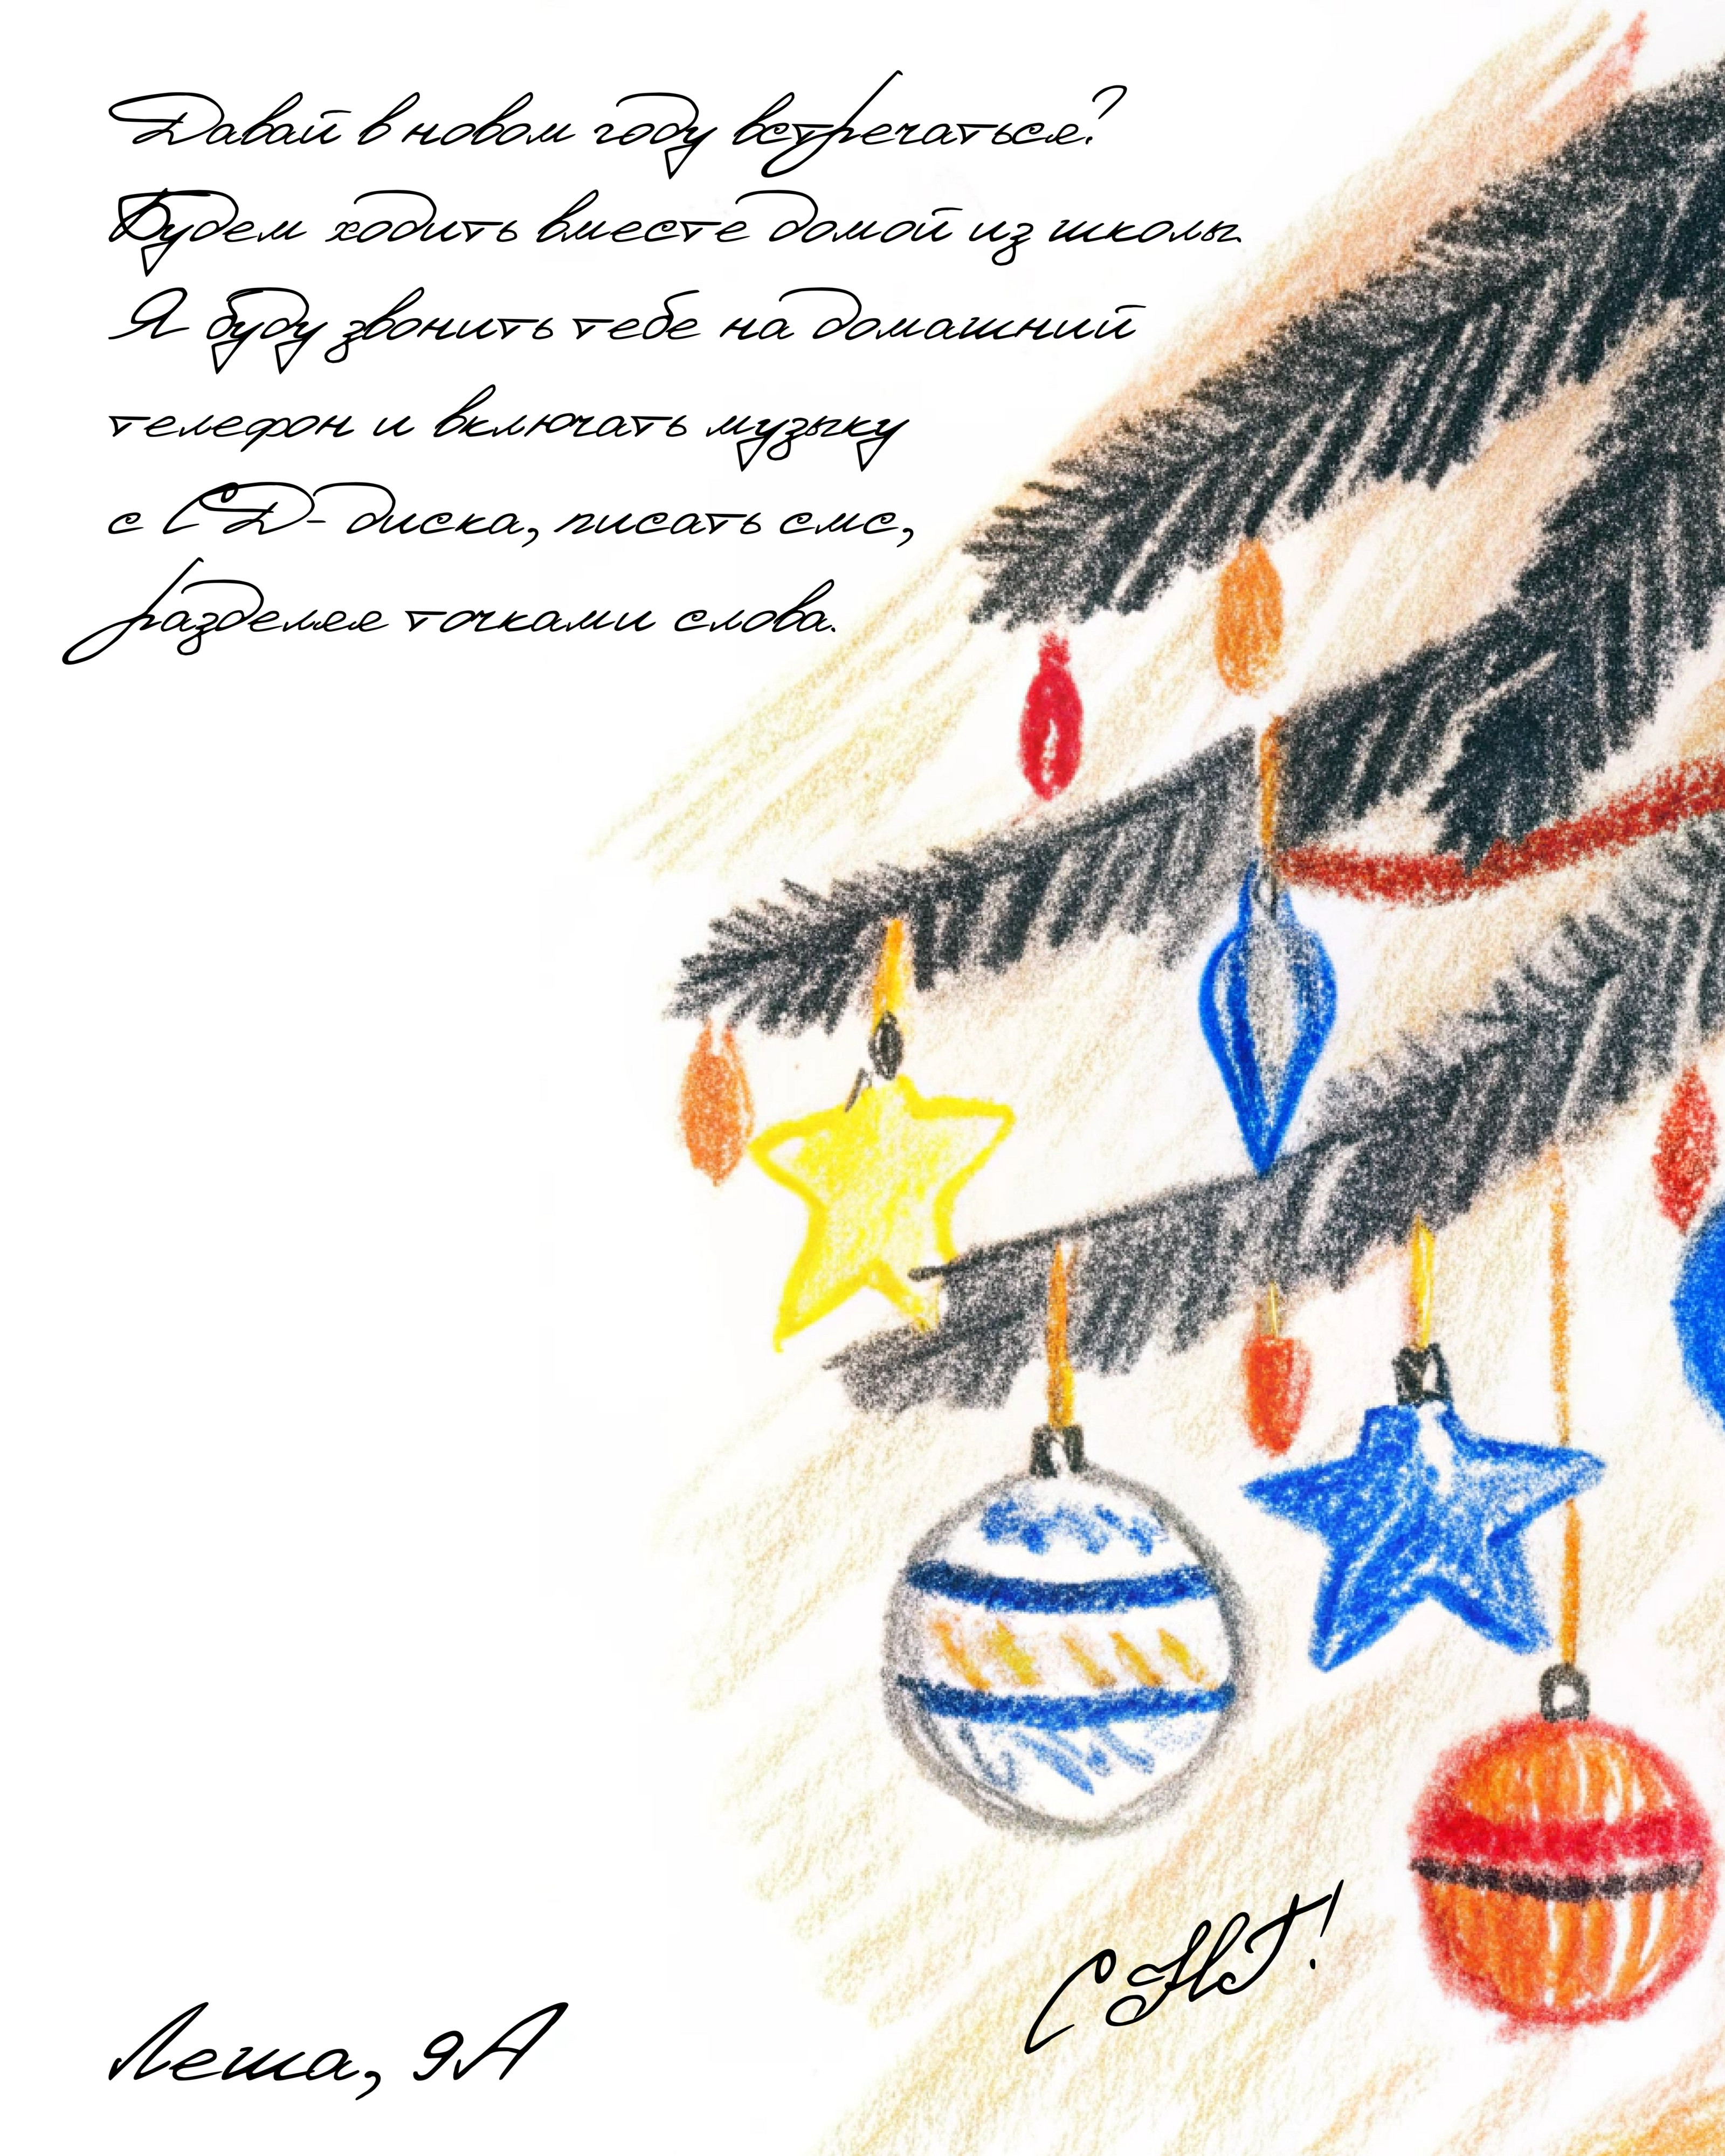 Давай в новом году встречаться?
Будем ходить вместе домой из школы.
Я буду звонить тебе на домашний
телефон и включать музыку
с СД-диска, писать смс,
разделяя точками слова.
С НГ!
Леша, 9А